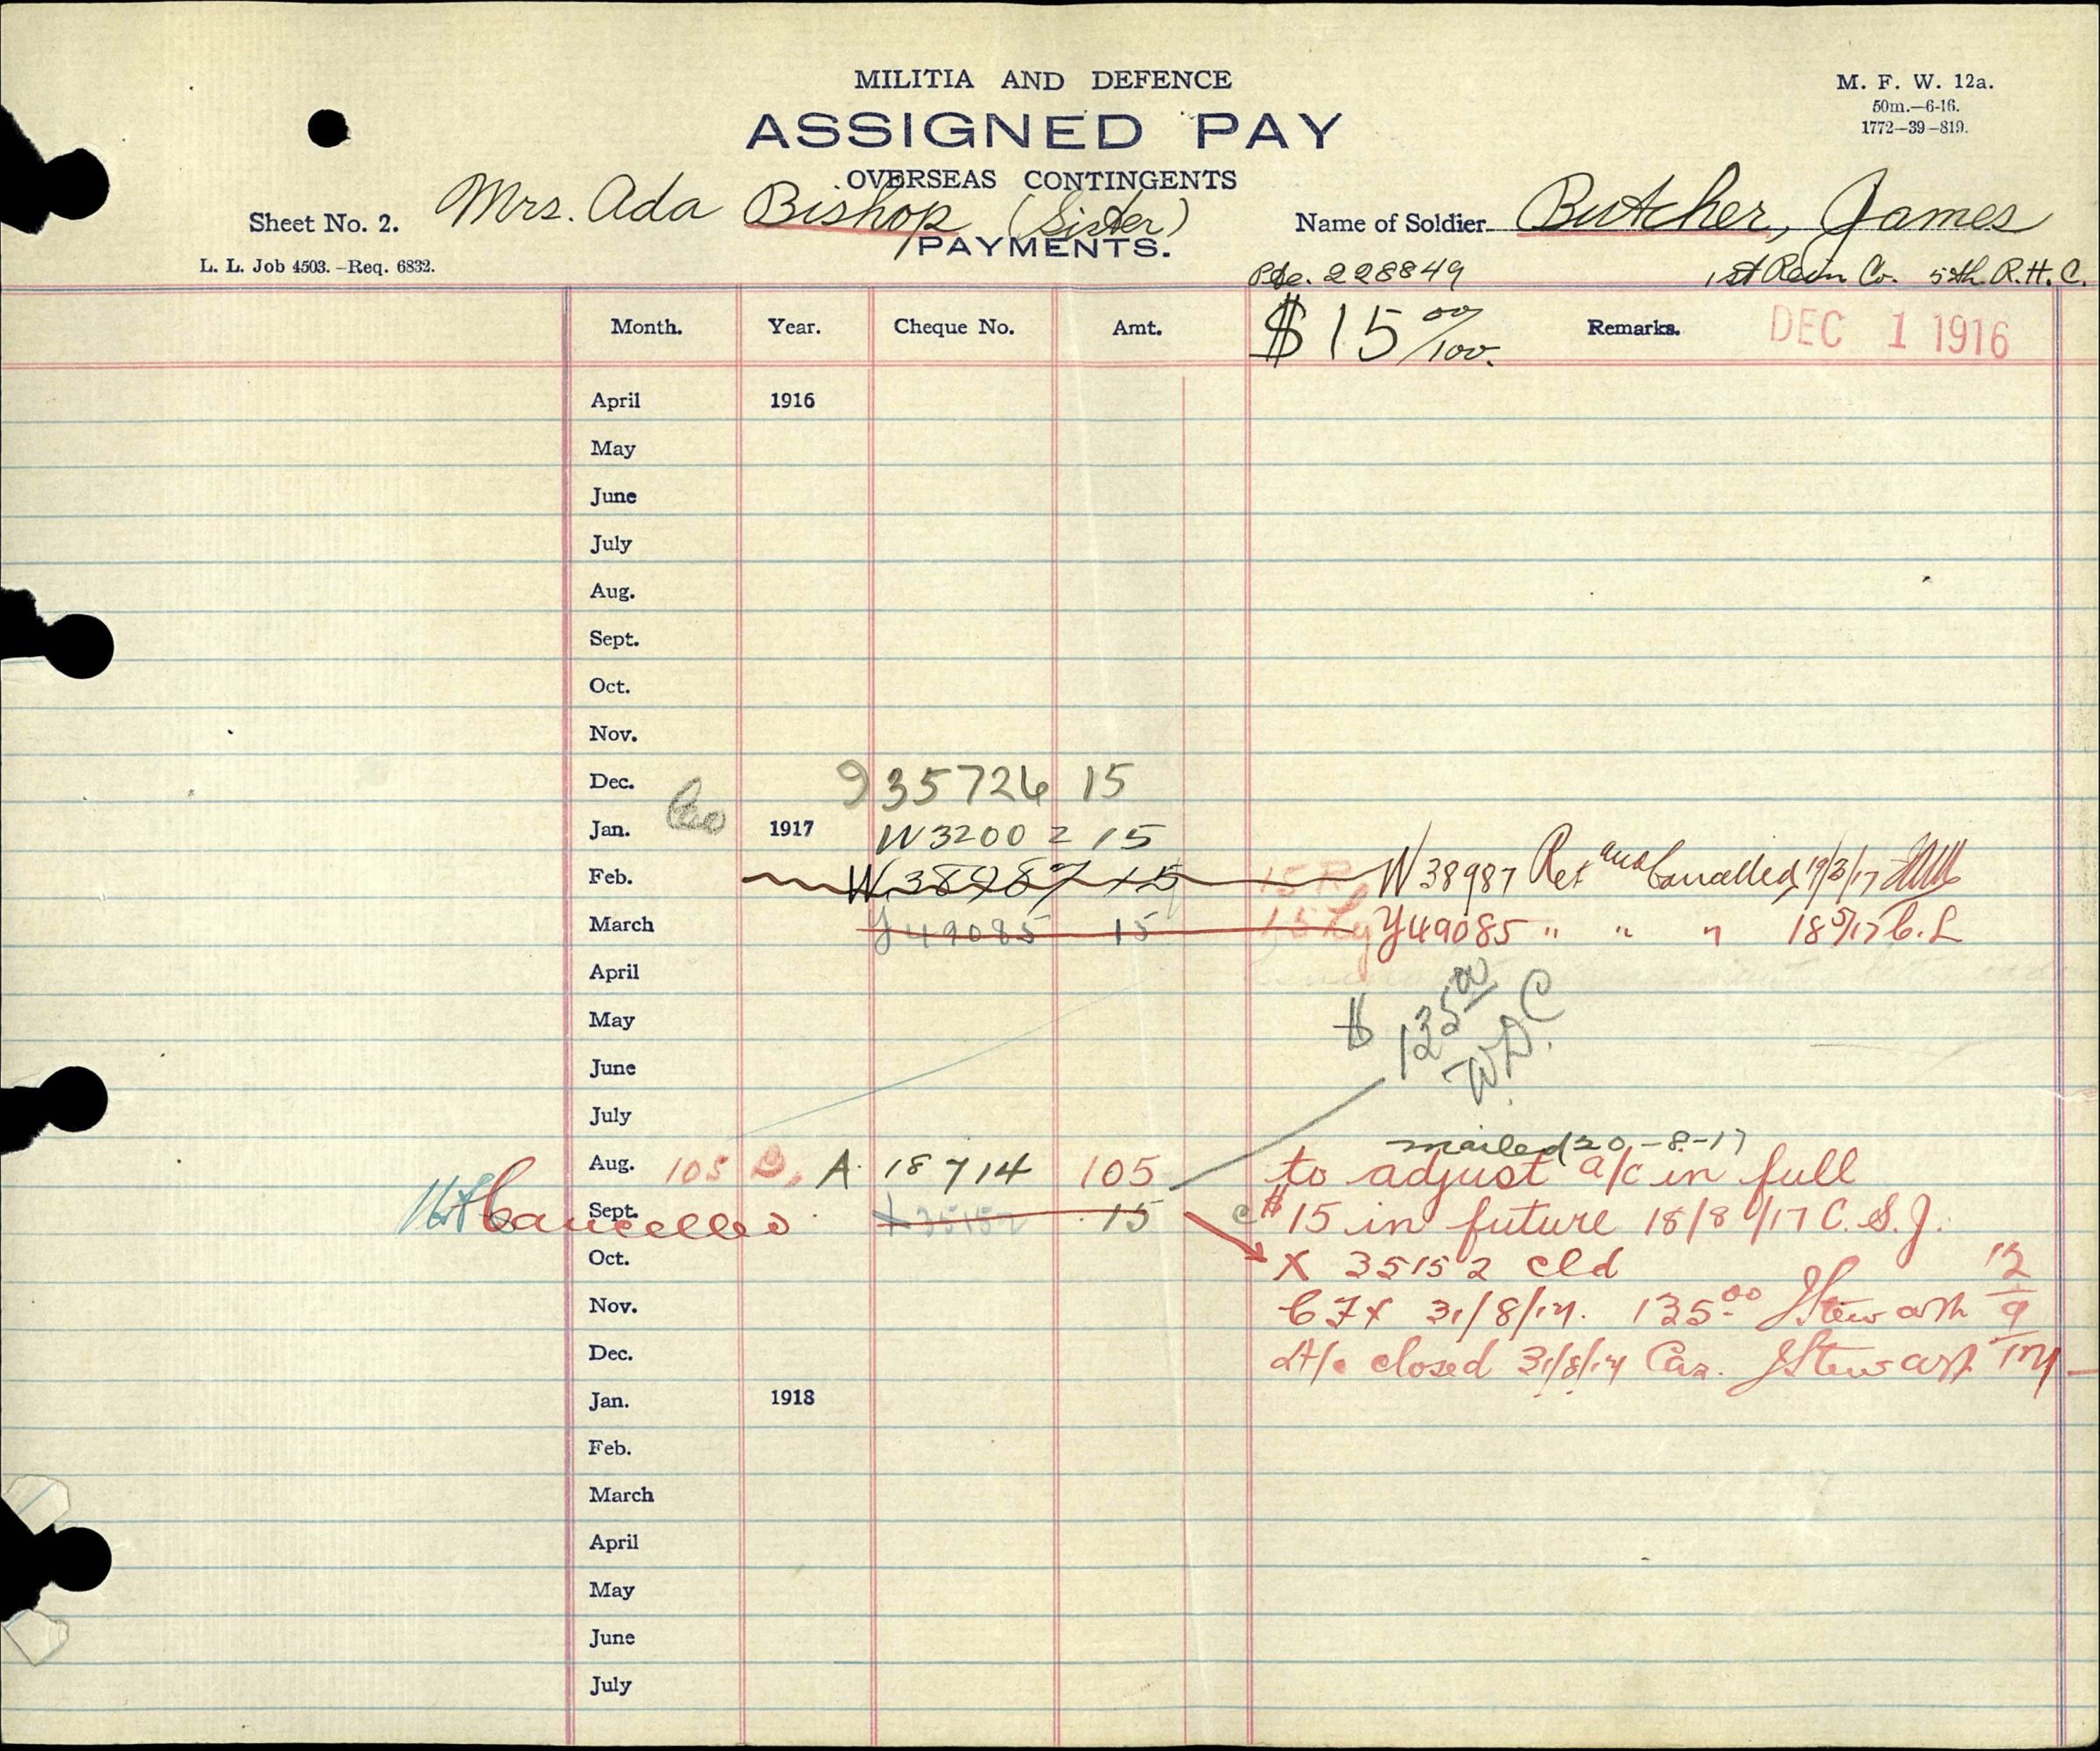 MILITIA AND DEFENCE
M. F. W. 12a.
ASSIGNED PAY
50m.—6-16.
1772—39—819.
OVERSEAS CONTINGENTS
Sheet No. 2. Mrs. Ada Bishop (Sister) Name of Soldier Butcher, James
PAYMENTS.
L. L. Job 4503.—Req. 6832. Pte. 228849 1st Co. 5th R.H.C.
Month. Year. Cheque No. Amt. $15 00/100. Remarks. DEC 1 1916
April 1916
May
June
July
Aug.
Sept.
Oct.
Nov.
Dec. 935726 15
Jan. 1917 W32002 15
Feb. W38987 15 15 R W38987 Ret and Cancelled 19/3/17
March Y49085 15 15 Y49085 " " " 18/5/17 C.L
April
$135 00
W.D.C
May
June
July
mailed 20-8-17
Aug. 105 D, A 18714 105 to adjust a/c in full
Cancelled Sept. X 35152 15 $15 in future 18/8/17 C.S.J.
Oct. X 35152 Cld 12
Nov. 31/8/17. 135.00 Stewart 9
Dec. A/c closed 31/8/17 Stewart 17
Jan. 1918
Feb.
March
April
May
June
July